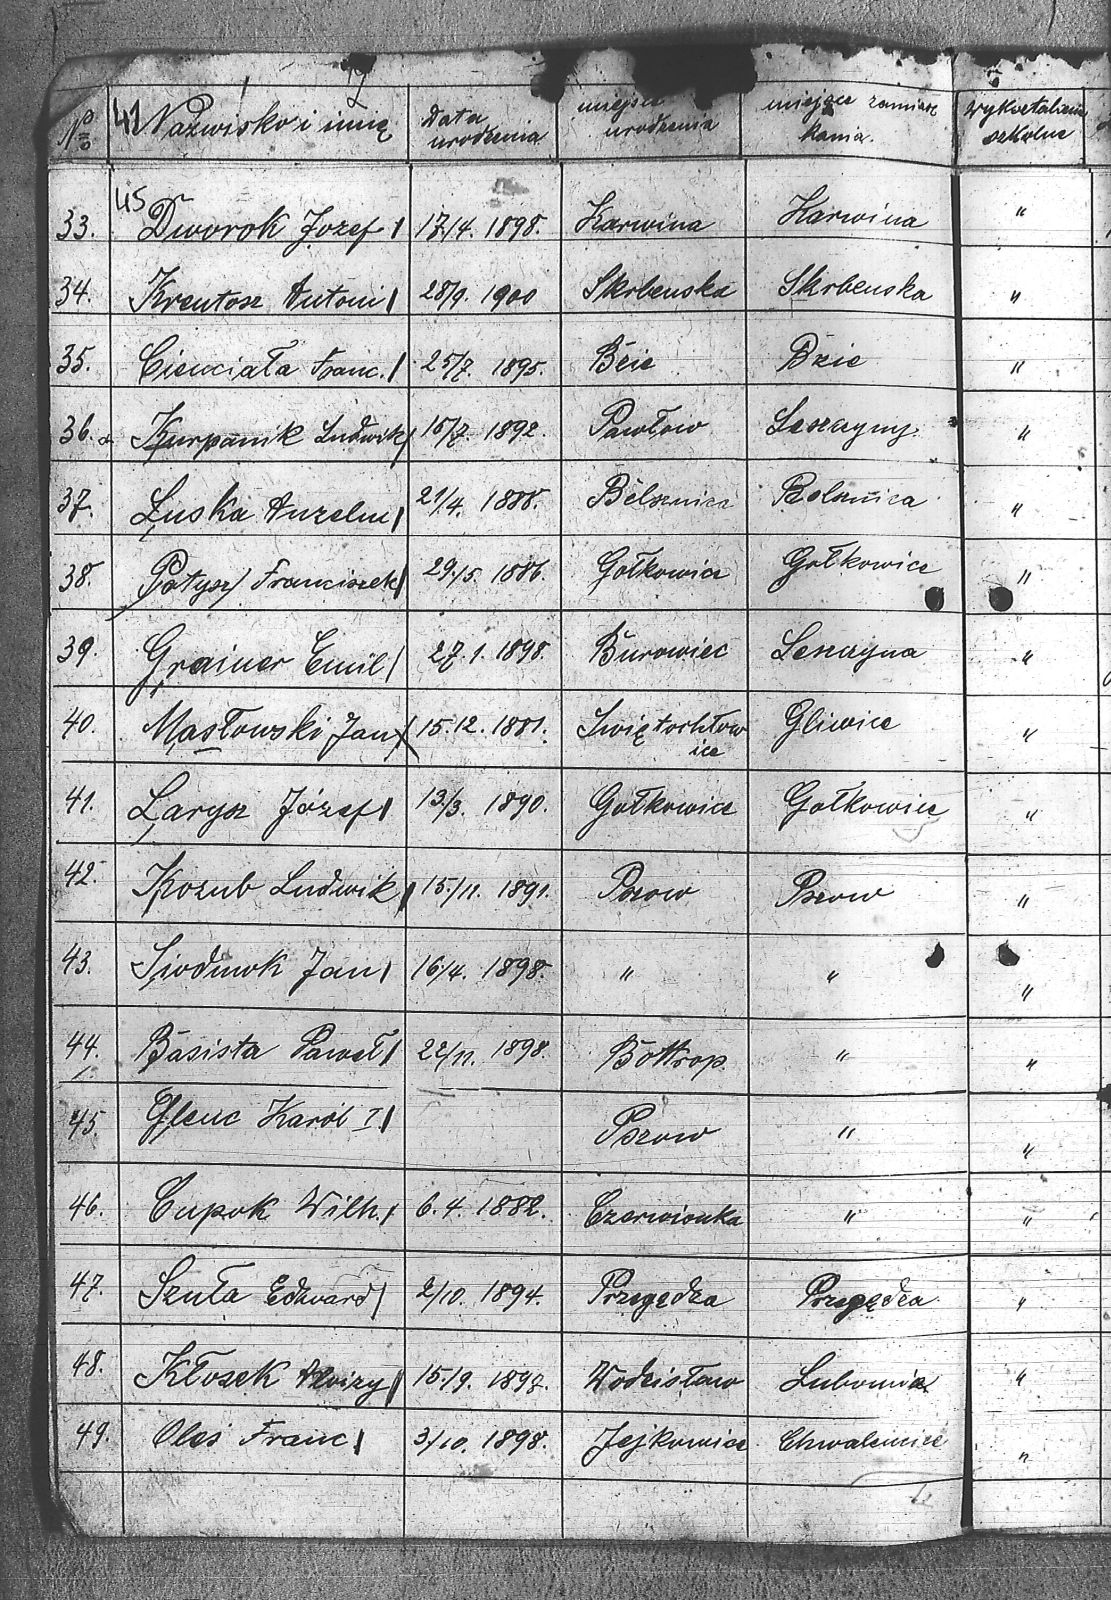 No 41 Nazwisko i imię Data urodzenia miejsce urodzenia miejsce zamieszkania. Wykształcenie szkolne
45
33. Dworok Józef 17/4. 1898. Karwina Karwina "
34. Krentosz Antoni 28/9. 1900 Skrbenska Skrbenska "
35. Cienciała Franc. 25/7. 1895. Bzie Bzie "
36. Kurpanik Ludwik 15/7. 1892. Pawłow Leszczyny "
37. Łuska Anzelm 21/4. 1888. Belsznica Belsznica "
38. Potysz Franciszek 29/5. 1886. Gołkowice Gołkowice "
39. Grainer Emil 27.1. 1898. Burowiec Leszczyna "
40. Masłowski Jan 15.12. 1881. Świętochłowice Gliwice "
41. Larysz Józef 13/3. 1890. Gołkowice Gołkowice "
42. Kozub Ludwik 15/11. 1891. Pszow Pszow "
43. Siodmok Jan 16/4. 1898. " " "
44. Basista Paweł 22/11. 1898. Bottrop " "
45. Glenc Karól I. Pszow " "
46. Cupok Wilh. 6.4. 1882. Czerwionka " "
47. Szuła Edward 2/10. 1894. Przegędza Przegędza "
48. Kłosek Alojzy 15/9. 1898. Wodzisław Lubomia "
49. Oleś Franc 3/10. 1898. Jejkowice Chwalencice "